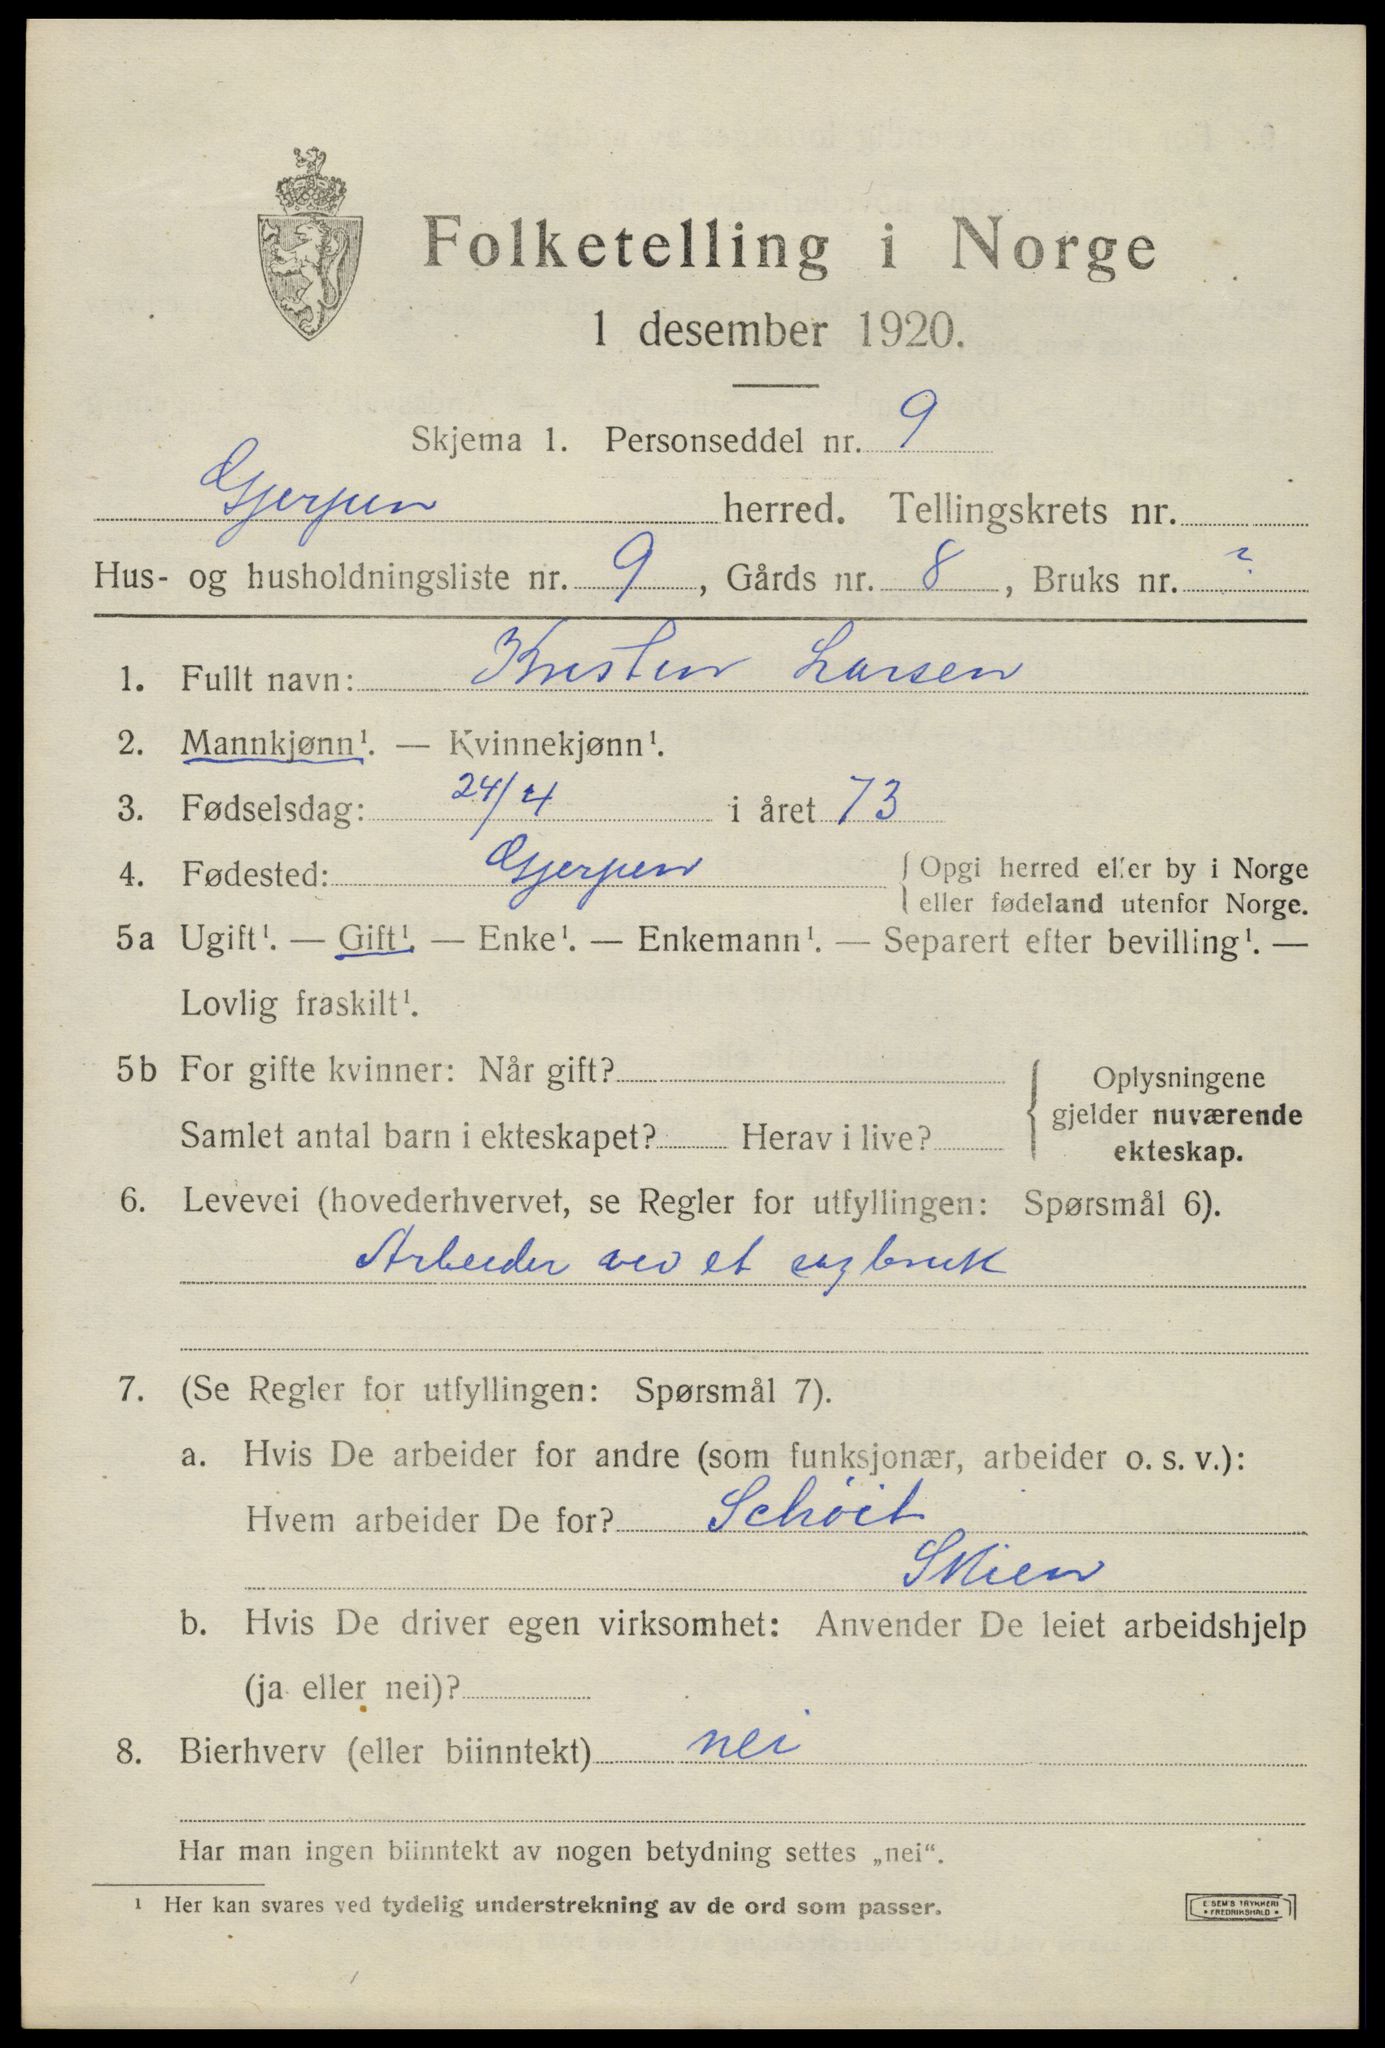 Folketelling i Norge
1 desember 1920.
Skjema 1. Personseddel nr. 9
Gjerpen herred. Tellingskrets nr.
Hus- og husholdningsliste nr. 9, Gårds nr. 8, Bruks nr. ?
1. Fullt navn: Kristen Larsen
2. Mannkjønn¹. — Kvinnekjønn¹.
3. Fødselsdag: 24/4 i året 73
4. Fødested: Gjerpen { Opgi herred eller by i Norge
eller fødeland utenfor Norge.
5a Ugift¹. — Gift¹. — Enke¹. — Enkemann¹. — Separert efter bevilling¹. —
Lovlig fraskilt¹.
5b For gifte kvinner: Når gift?
Samlet antal barn i ekteskapet? Herav i live?
{ Oplysningene
gjelder nuværende
ekteskap.
6. Levevei (hovederhvervet, se Regler for utfyllingen: Spørsmål 6).
Arbeider ved et sagbruk
7. (Se Regler for utfyllingen: Spørsmål 7).
a. Hvis De arbeider for andre (som funksjonær, arbeider o. s. v.):
Hvem arbeider De for? Schöit
Skien
b. Hvis De driver egen virksomhet: Anvender De leiet arbeidshjelp
(ja eller nei)?
8. Bierhverv (eller biinntekt) nei
Har man ingen biinntekt av nogen betydning settes „nei“.
¹ Her kan svares ved tydelig understrekning av de ord som passer.
E SEM'S TRYKKERI
• FREDRIKSHALD •